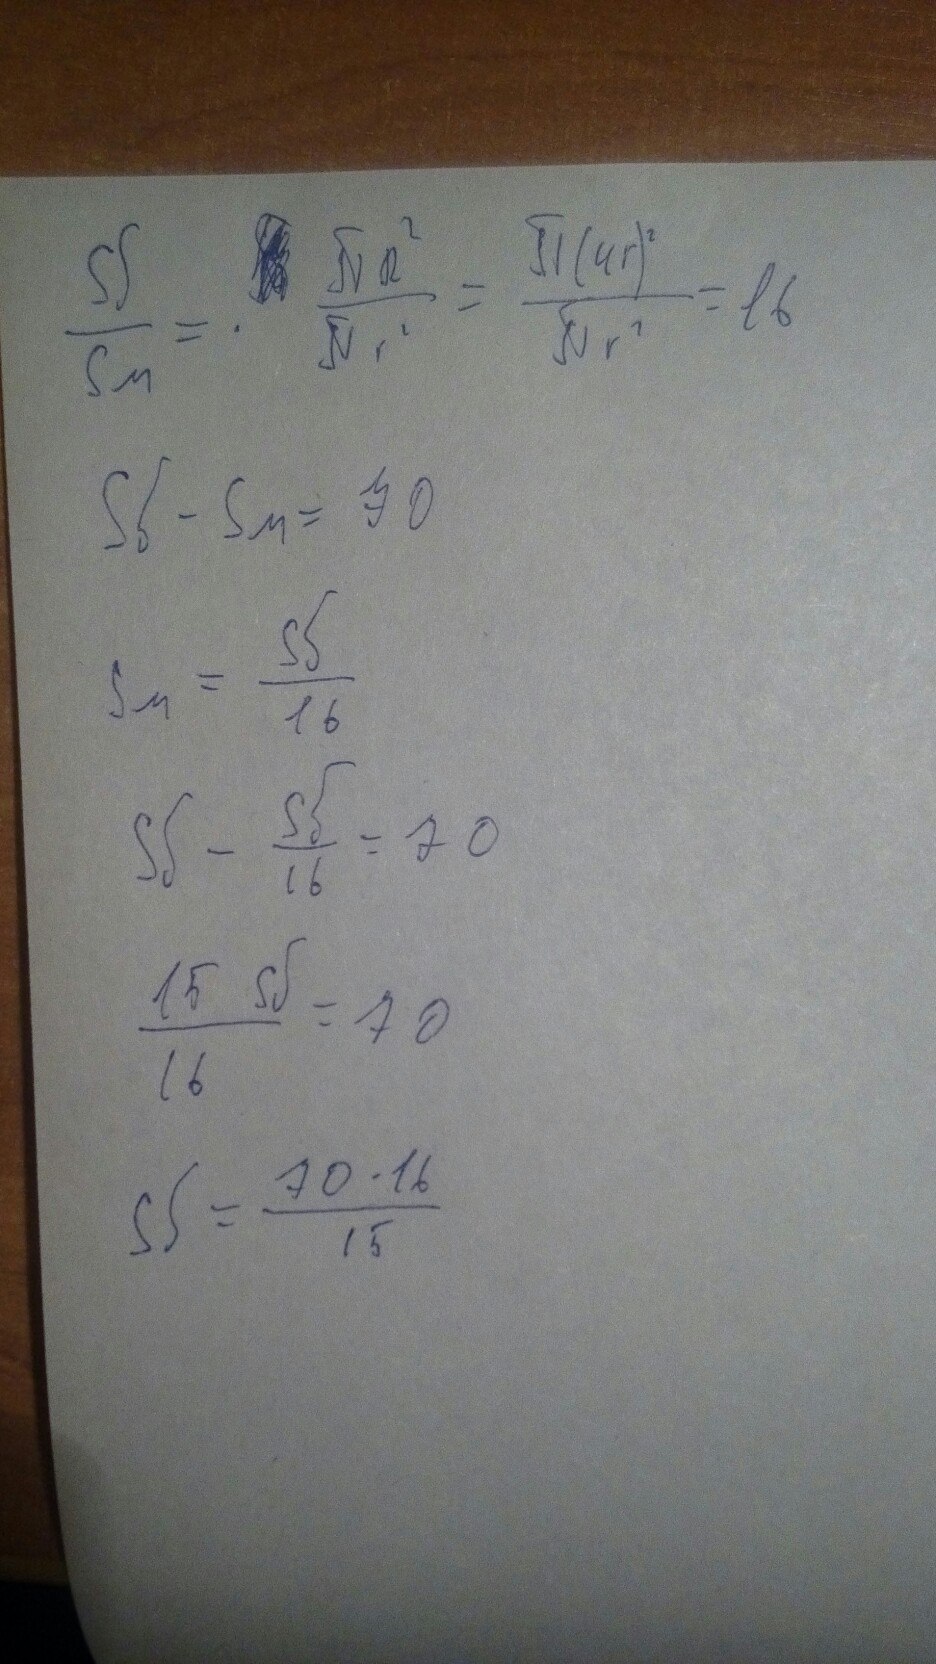 Sб/Sм = · πR²/πr² = π(4r)²/πr² = 16
Sб - Sм = 70
Sм = Sб/16
Sб - Sб/16 = 70
15 Sб/16 = 70
Sб = 70·16/15